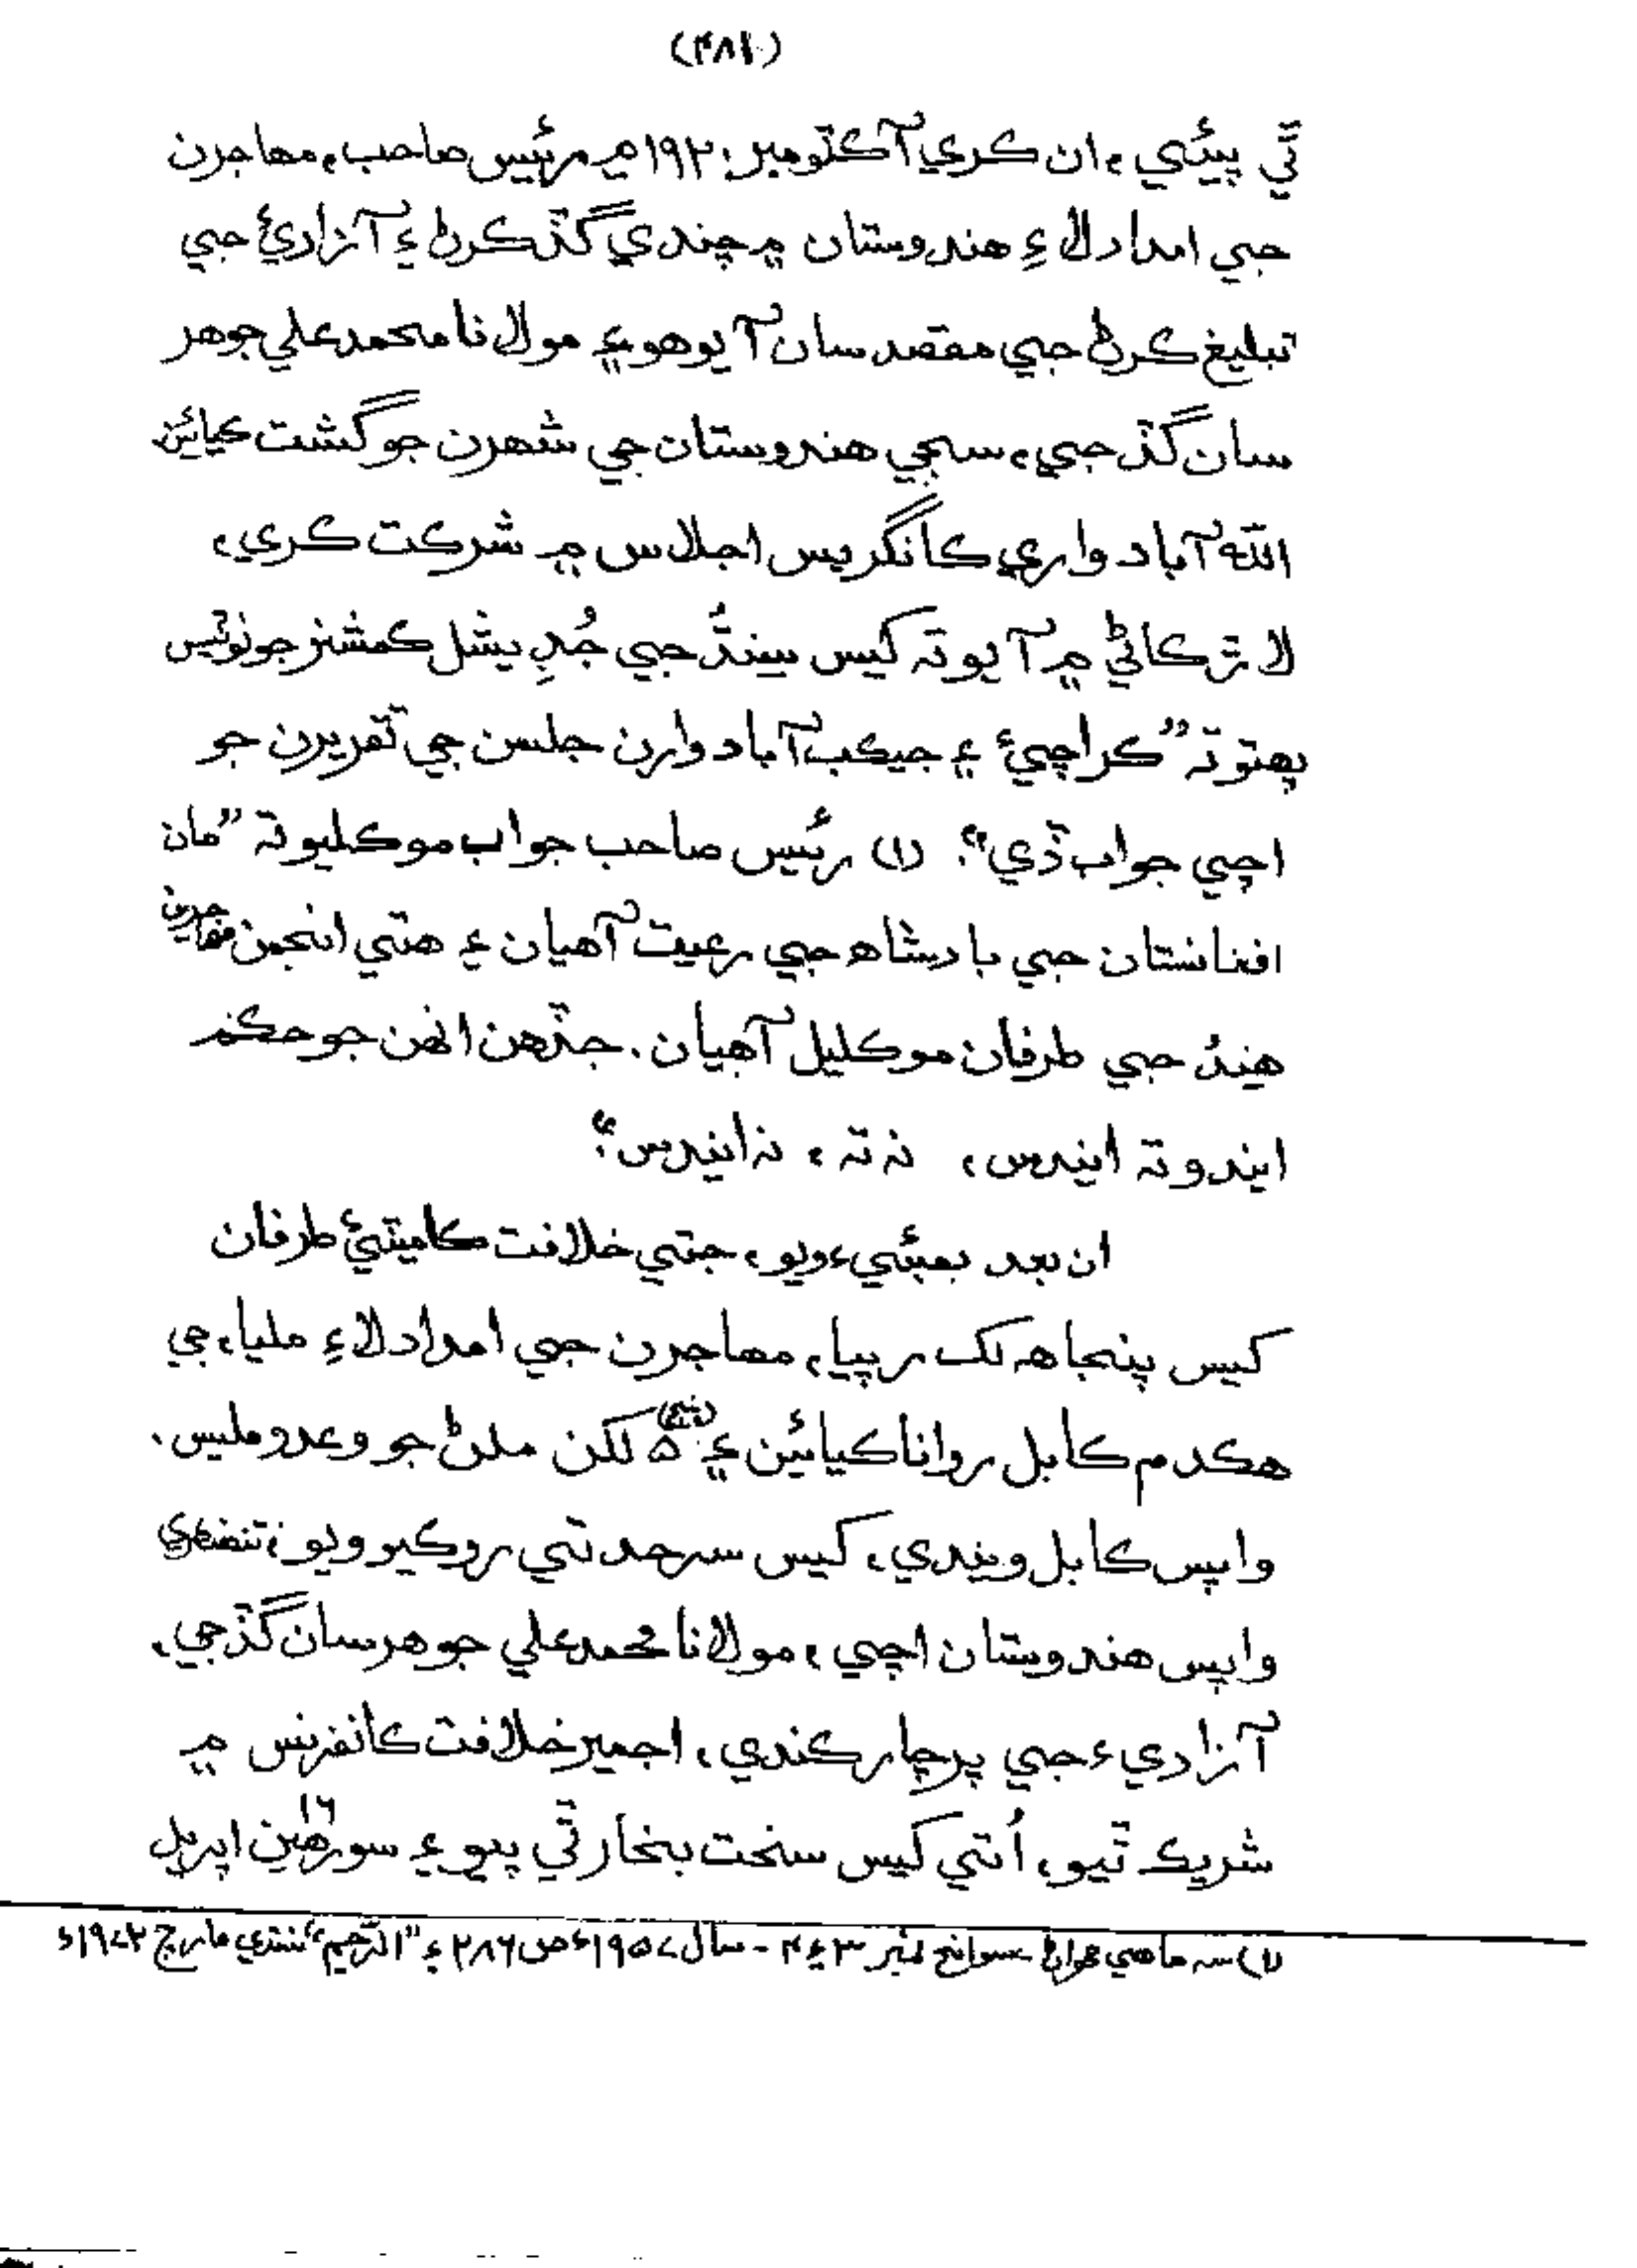 (۴۸۱)
ٿي پيئي، ان ڪري آڪٽومبر ۱۹۲۰م ۾ رئيس صاحب، مهاجرن
جي امداد لاءِ هندوستان ۾ چندي گڏ ڪرڻ ۽ آزاديءَ جي
تبليغ ڪرڻ جي مقصد سان آيو هو ۽ مولانا محمد علي جوهر
سان گڏجي، سڄي هندوستان جي شهرن جو گشت ڪيائين.
الله آباد واري ڪانگريس اجلاس ۾ شرڪت ڪري،
لاڙڪاڻي ۾ آيو ته کيس سينڌ جي جُڊيشل ڪمشنر جو نوٽيس
پهتو ته ”ڪراچيءَ ۽ جيڪب آباد وارن جلسن جي تقريرن جو
اچي جواب ڏي“. (۱) رئيس صاحب جواب موڪليو ته ”مان
افغانستان جي بادشاهه جي رعيت آهيان ۽ هتي انجمن مهاجرين
هند جي طرفان موڪليل آهيان. جڏهن انهن جو حڪم
ايندو ته ايندس، نه ته، نه ايندس“
ان بعد بمبئيءَ ويو، جتي خلافت ڪاميٽيءَ طرفان
کيس پنجاهه لک رپيا، مهاجرن جي امداد لاءِ مليا، جي
هڪدم ڪابل روانا ڪيائين ۽ ۵ لکن ملڻ جو وعدو مليس.
واپس ڪابل ويندي، کيس سرحد تي روڪيو ويو، تنهنڪري
واپس هندوستان اچي، مولانا محمد علي جوهر سان گڏجي،
آزاديءَ جي پرچار ڪندي، اجمير خلافت ڪانفرنس ۾
شريڪ ٿيو، اُتي کيس سخت بخار ٿي پيو ۽ سورهين ۱۶ اپريل
(۱) سه ماهي مهراڻ سوانح نمبر ۳ ۽ ۴ - سال ۱۹۵۷ع ص ۲۸۶ ۽ ”الرحيم“ سنڌي مارچ ۱۹۷۲ع